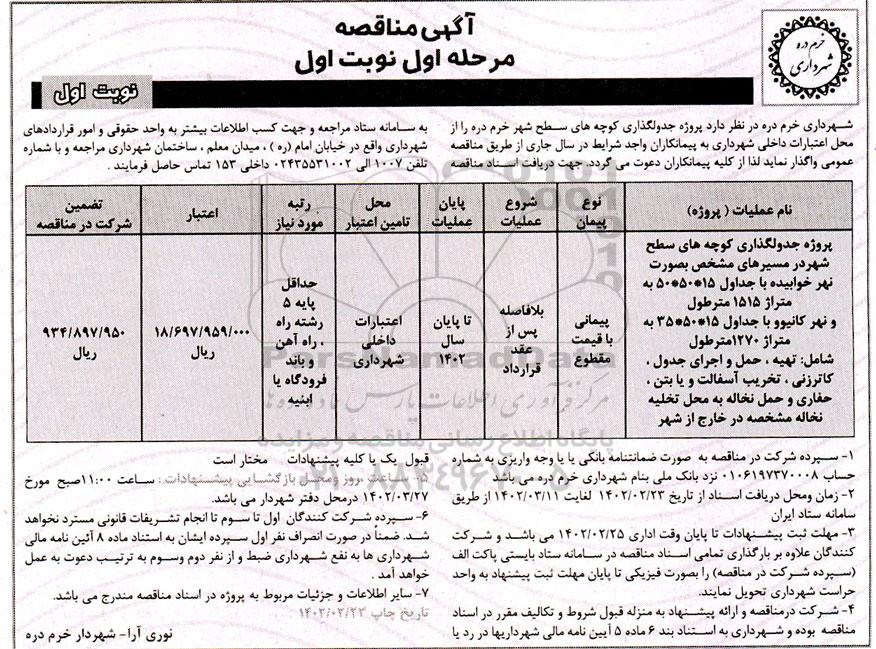 آگهی مناقصه
مرحله اول نوبت اول
خرم دره
شهرداری
نوبت اول
شهرداری خرم دره در نظر دارد پروژه جدولگذاری کوچه های سطح شهر خرم دره را از
محل اعتبارات داخلی شهرداری به پیمانکاران واجد شرایط در سال جاری از طریق مناقصه
عمومی واگذار نماید لذا از کلیه پیمانکاران دعوت می گردد. جهت دریافت اسناد مناقصه
به سامانه ستاد مراجعه و جهت کسب اطلاعات بیشتر به واحد حقوقی و امور قراردادهای
شهرداری واقع در خیابان امام (ره) ، میدان معلم ، ساختمان شهرداری مراجعه و با شماره
تلفن ۱۰۰۷ الی ۰۲۴۳۵۵۳۱۰۰۲ داخلی ۱۵۳ تماس حاصل فرمایند .
نام عملیات ( پروژه)
نوع
پیمان
شروع
عملیات
پایان
عملیات
محل
تامین اعتبار
رتبه
مورد نیاز
اعتبار
تضمین
شرکت در مناقصه
پروژه جدولگذاری کوچه های سطح
شهردر مسیرهای مشخص بصورت
نهر خوابیده با جداول ۱۵*۵۰*۵۰ به
متراژ ۱۵۱۵ مترطول
و نهر کانیوو با جداول ۱۵*۵۰*۳۵ به
متراژ ۱۲۷۰مترطول
شامل: تهیه ، حمل و اجرای جدول ،
کاترزنی ، تخریب آسفالت و یا بتن ،
حفاری و حمل نخاله به محل تخلیه
نخاله مشخصه در خارج از شهر
پیمانی
با قیمت
مقطوع
بلافاصله
پس از
عقد
قرارداد
تا پایان
سال
۱۴۰۲
اعتبارات
داخلی
شهرداری
حداقل
پایه ۵
رشته راه
، راه آهن
و باند
فرودگاه یا
ابنیه
۱۸/۶۹۷/۹۵۹/۰۰۰
ریال
۹۳۴/۸۹۷/۹۵۰
ریال
Pars Namad Data
مرکز فرآوری اطلاعات پارس نماد داده ها
پایگاه اطلاع رسانی مناقصه و مزایده
۱- سپرده شرکت در مناقصه به صورت ضمانتنامه بانکی یا یا وجه واریزی به شماره
حساب ۰۱۰۶۱۹۷۳۷۰۰۰۸ نزد بانک ملی بنام شهرداری خرم دره می باشد
۲- زمان ومحل دریافت اسناد از تاریخ ۱۴۰۲/۰۲/۲۳ لغایت ۱۴۰۲/۰۳/۱۱ از طریق
سامانه ستاد ایران
۳- مهلت ثبت پیشنهادات تا پایان وقت اداری ۱۴۰۲/۰۲/۲۵ می باشد و شرکت
کنندگان علاوه بر بارگذاری تمامی اسناد مناقصه در سامانه ستاد بایستی پاکت الف
(سپرده شرکت در مناقصه) را بصورت فیزیکی تا پایان مهلت ثبت پیشنهاد به واحد
حراست شهرداری تحویل نمایند.
۴- شرکت درمناقصه و ارائه پیشنهاد به منزله قبول شروط و تکالیف مقرر در اسناد
مناقصه بوده و شهرداری به استناد بند ۶ ماده ۵ آیین نامه مالی شهرداریها در رد یا
قبول یک یا کلیه پیشنهادات مختار است
۵- ساعت ،روز ومحل بازگشایی پیشنهادات : ساعت ۱۱:۰۰صبح مورخ
۱۴۰۲/۰۳/۲۷ درمحل دفتر شهردار می باشد.
۶- سپرده شرکت کنندگان اول تا سوم تا انجام تشریفات قانونی مسترد نخواهد
شد. ضمناً در صورت انصراف نفر اول سپرده ایشان به استناد ماده ۸ آئین نامه مالی
شهرداری ها به نفع شهرداری ضبط و از نفر دوم وسوم به ترتیب دعوت به عمل
خواهد آمد .
۷- سایر اطلاعات و جزئیات مربوط به پروژه در اسناد مناقصه مندرج می باشد.
تاریخ چاپ ۱۴۰۲/۰۲/۲۳
نوری آرا- شهردار خرم دره